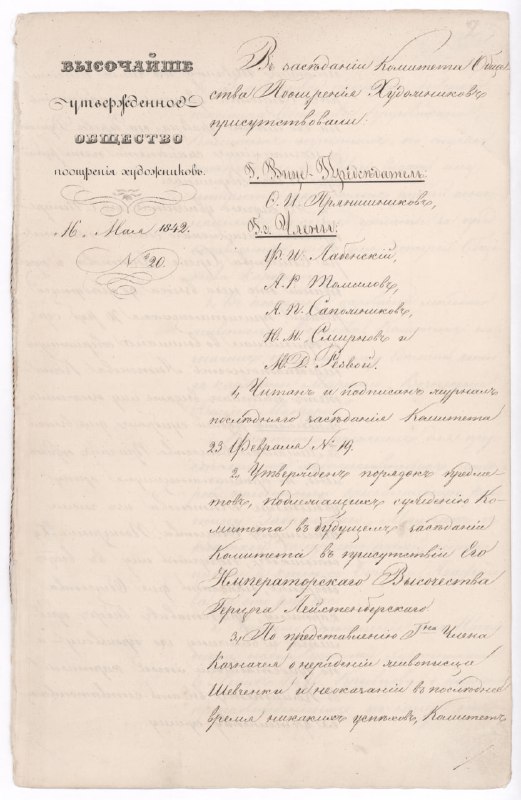 ВЫСОЧАЙШЕ
утвержденное
ОБЩЕСТВО
поощренія художниковъ.
16. Мая 1842.
№ 20.
Въ засѣданіи Комитета Обще
ства Поощренія Художниковъ
присутствовали:
Г. Вице-Предсѣдатель:
Ѳ. И. Прянишниковъ,
Гг. Члены:
Ф. И. Лабенскій,
А. Р. Томиловъ,
А. П. Сапожниковъ,
Н. М. Смирновъ и
М. Д. Рѣзвой.
1, Читанъ и подписанъ журналъ
послѣдняго засѣданія Комитета
23 Февраля № 19.
2, Утвержденъ порядокъ предме
товъ, подлежащихъ сужденію Ко-
митета въ будущемъ засѣданіи
Комитета въ присутствіи Его
Императорскаго Высочества
Герцога Лейхтенбергскаго
3, По представленію Гна Члена
Казначея о нерадѣніи живописца
Шевченки и неоказаніи въ послѣднее
время никакихъ успѣховъ, Комитетъ